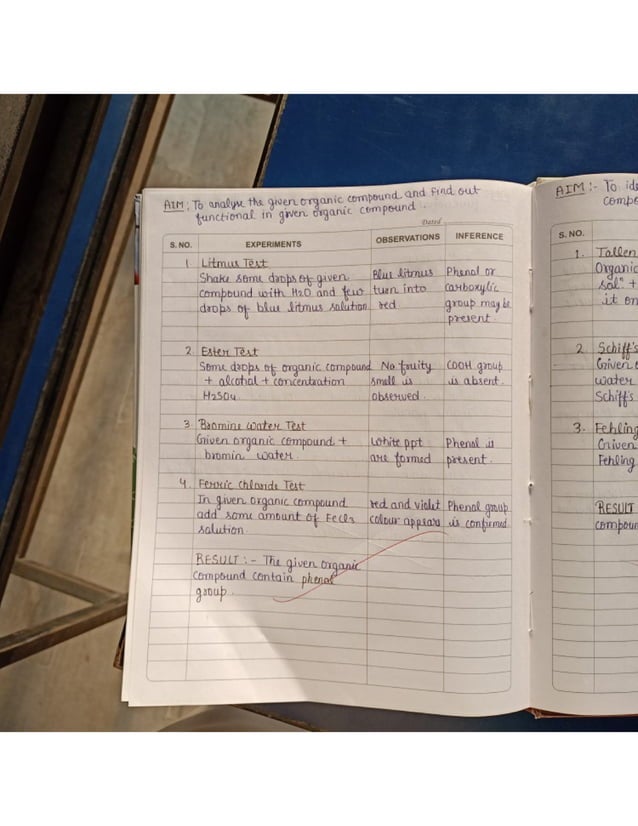 AIM : To analyse the given organic compound and find out
functional in given organic compound .
Dated
S. NO. EXPERIMENTS OBSERVATIONS INFERENCE
1 Litmus Test
Shake some drops of given Blue litmus Phenol or
compound with H2O and few turn into carboxylic
drops of blue litmus solution red group may be
present .
2. Ester Test
Some drops of organic compound No fruity COOH group
+ alcohal + concentration smell is is absent .
H2SO4 . observed .
3. Bromine Water Test
Given organic compound + white ppt Phenol is
bromin water . are formed present .
4. Ferric Chloride Test
In given organic compound red and violet Phenol group
add some amount of FeCl3 colour appears is confirmed
solution
RESULT : - The given organic
compound contain phenol
group .
AIM :- To
S. NO.
1. Tollen
Organic
sol" +
it
2. Schiff's
Given
water
Schiff's
3. Fehling
Given
Fehling
RESULT